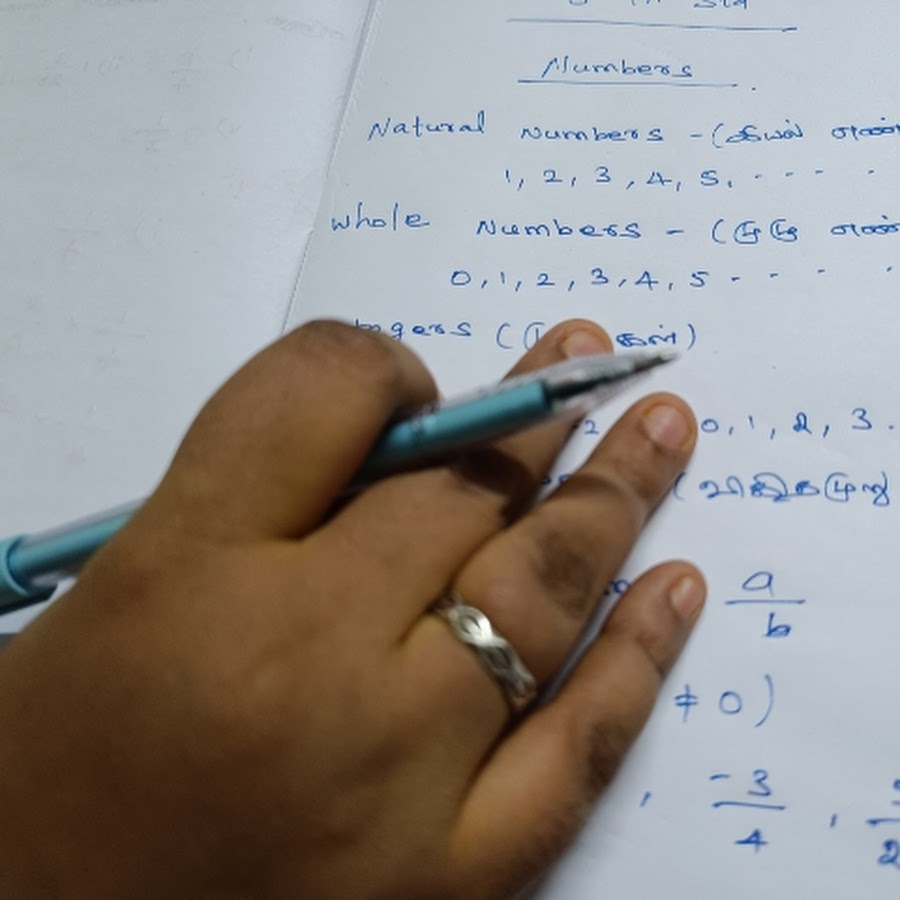 Numbers
Natural Numbers - (இயல் எண்
1, 2, 3, 4, 5, - - - -
Whole Numbers - (முழு எண்
0, 1, 2, 3, 4, 5 - - - -
கள்)
0, 1, 2, 3 .
(விகிதமுறு
a
b
≠ 0)
, -3 ,
4 2